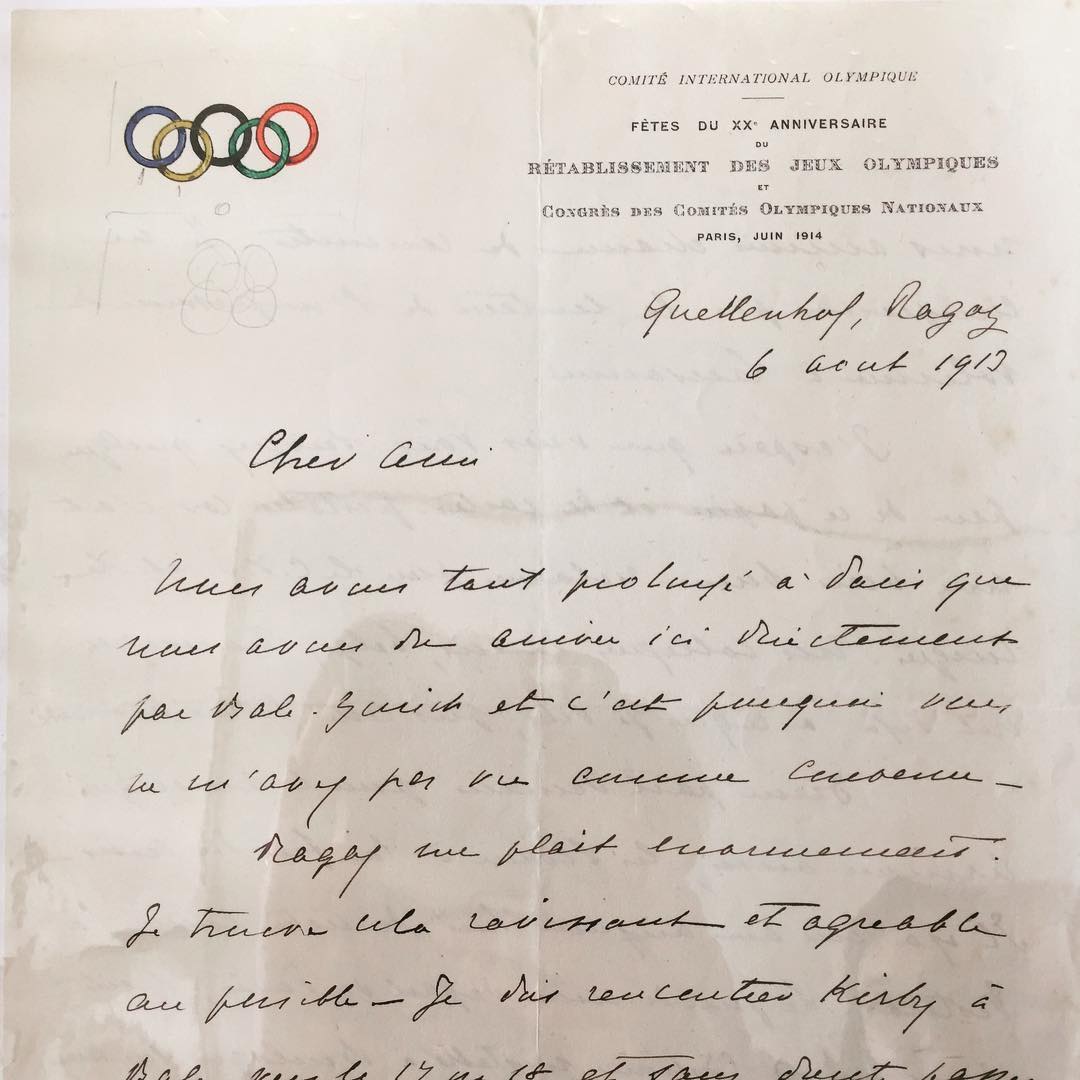 COMITÉ INTERNATIONAL OLYMPIQUE
FÊTES DU XXe ANNIVERSAIRE
DU
RÉTABLISSEMENT DES JEUX OLYMPIQUES
ET
CONGRÈS DES COMITÉS OLYMPIQUES NATIONAUX
PARIS, JUIN 1914
Quellenhof, Ragaz
6 aout 1913
Cher ami
Nous avons tant prolongé à Paris que
nous avons du arriver ici directement
par Bale-Zurich et c'est pourquoi vous
ne m'avez pas vu comme convenu —
Ragaz me plait enormement.
Je trouve cela ravissant et agreable
au possible — Je dois rencontrer Kirby à
Bale vers le 17 ou 18 et sans doute